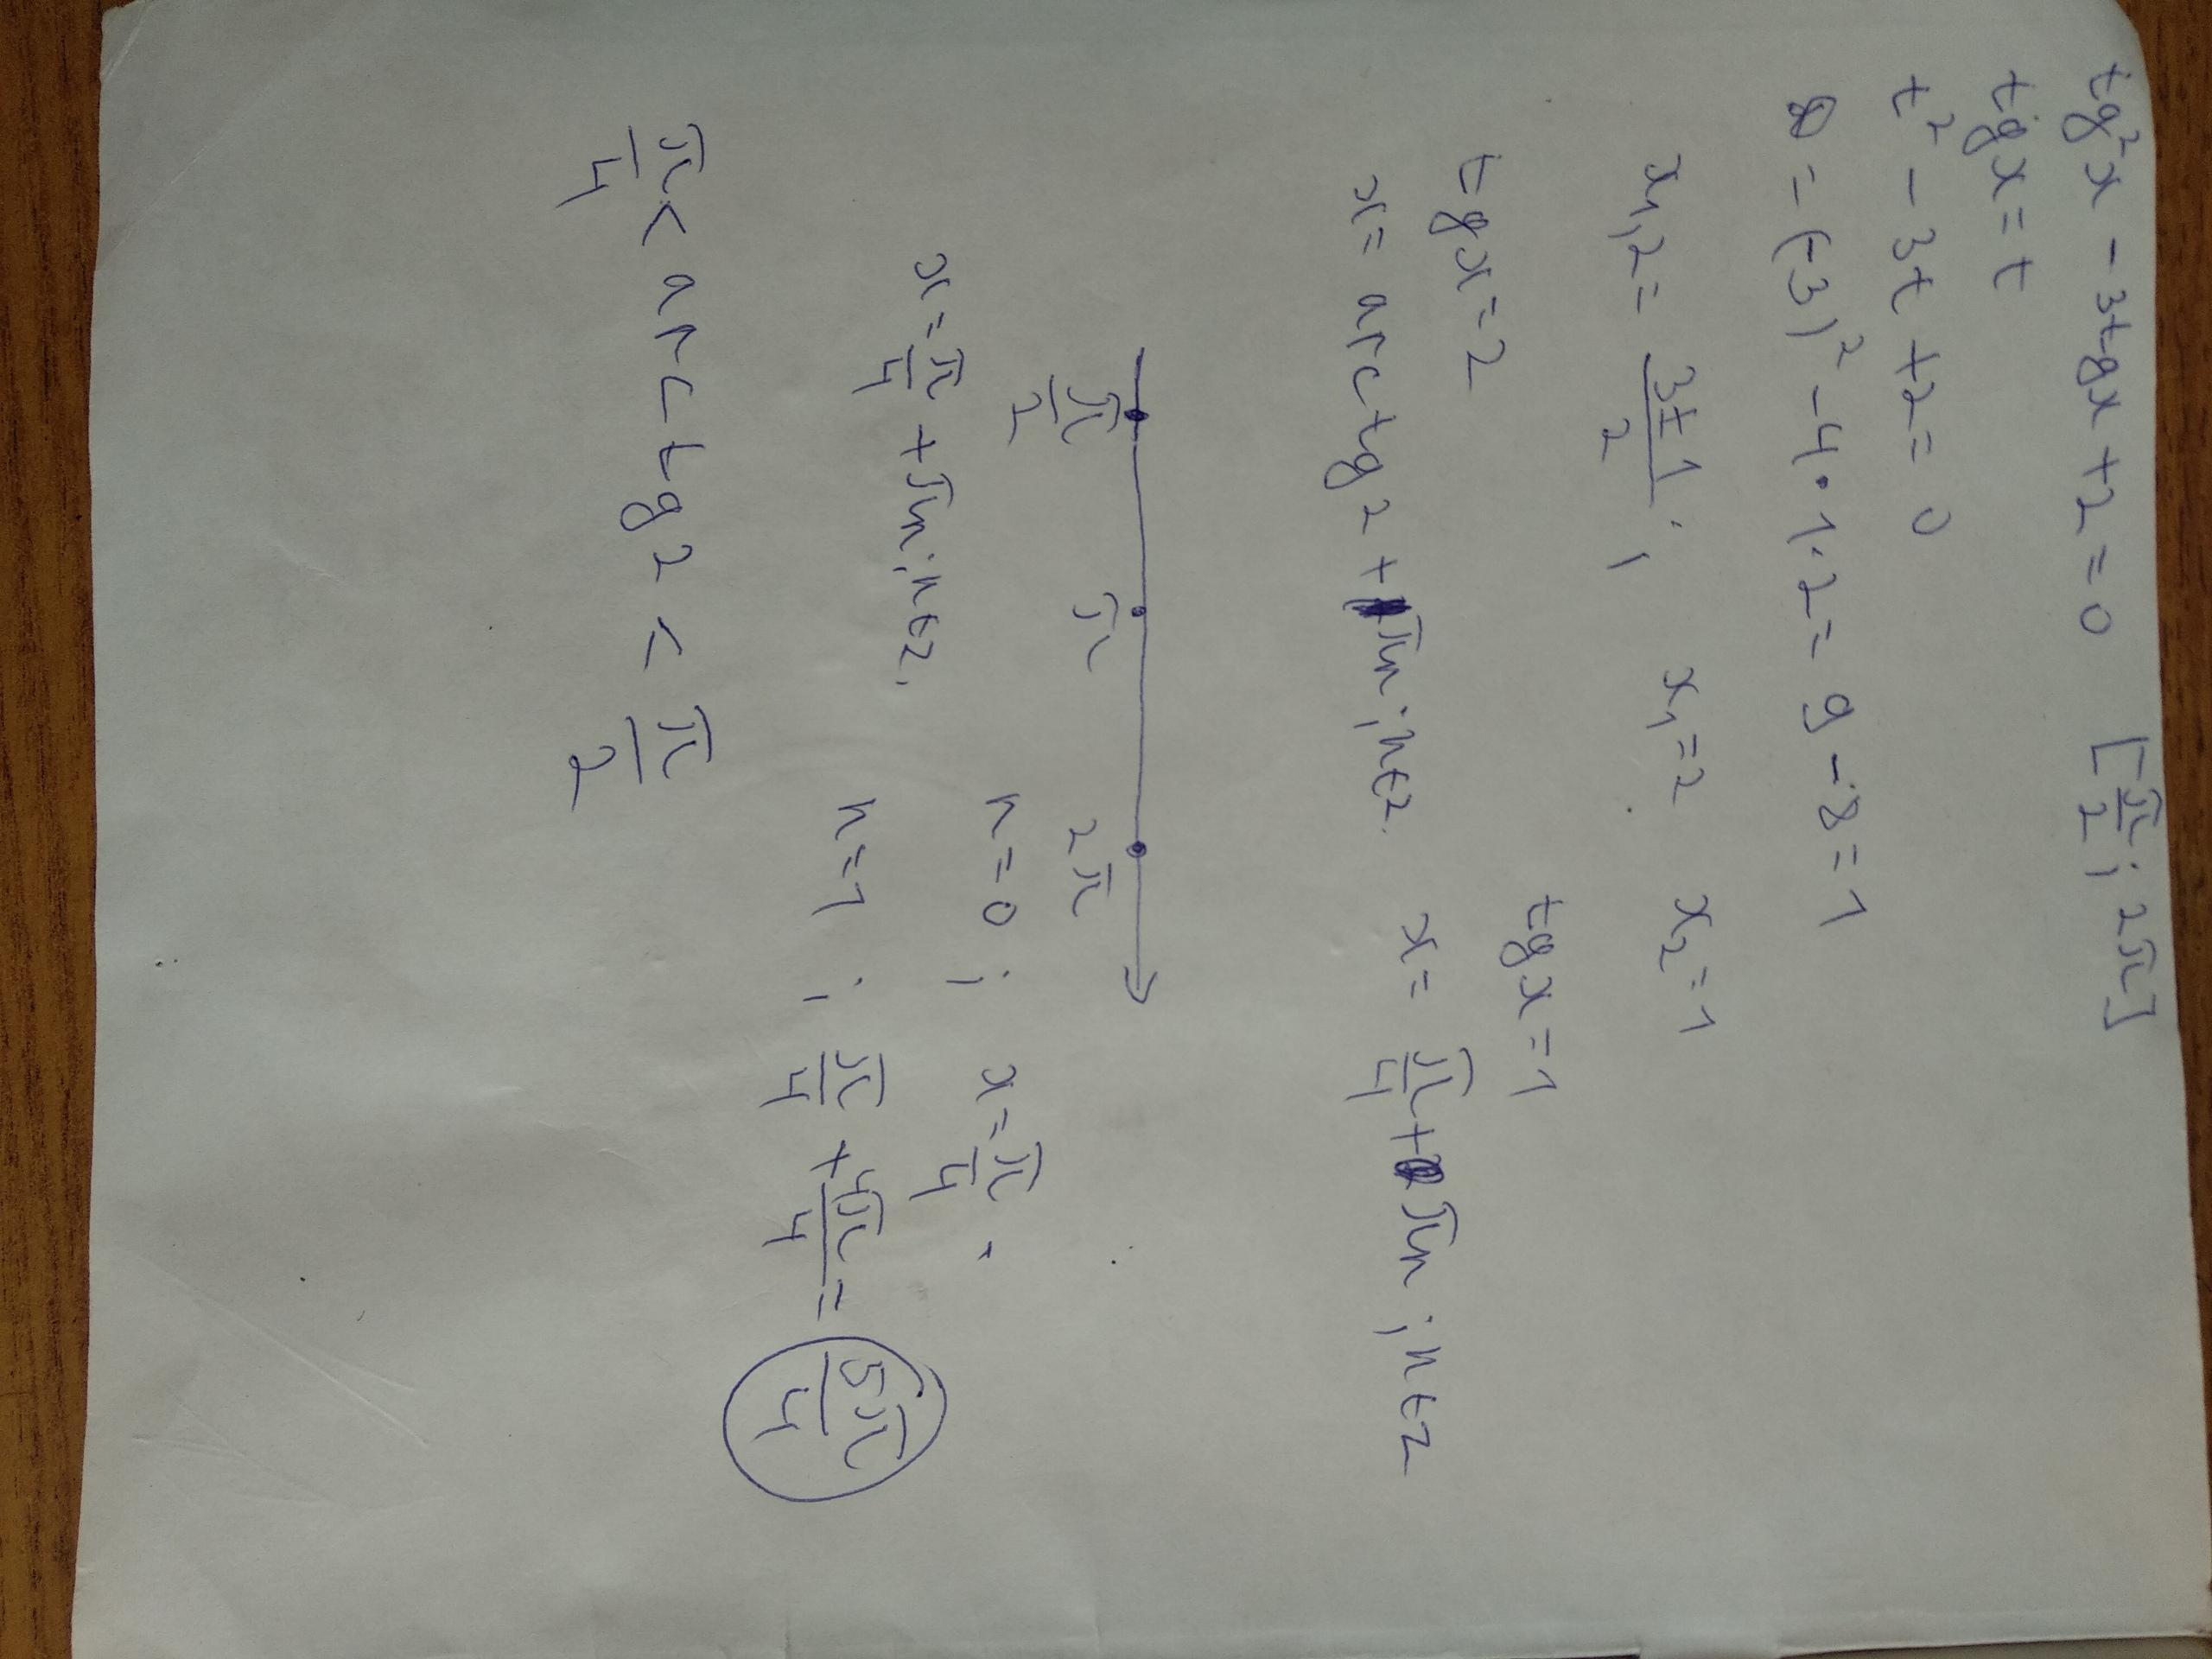 tg²x - 3tgx + 2 = 0 [π/2; 2π]
tgx = t
t² - 3t + 2 = 0
D = (-3)² - 4·1·2 = 9 - 8 = 1
x₁,₂ = (3±1)/2; x₁ = 2 x₂ = 1
tgx = 2 tgx = 1
x = arctg2 + πn; n∈Z. x = π/4 + πn; n∈Z
π/2 π 2π
n = 0; x = π/4.
x = π/4 + πn; n∈Z.
n = 1; π/4 + 4π/4 = 5π/4
π/4 < arctg2 < π/2